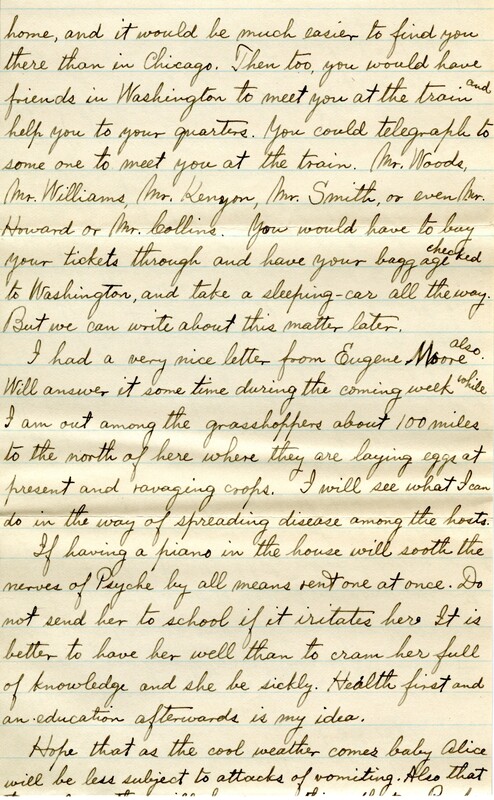 home, and it would be much easier to find you
there than in Chicago. Then too, you would have
friends in Washington to meet you at the train and
help you to your quarters. You could telegraph to
some one to meet you at the train. Mr. Woods,
Mr. Williams, Mr. Kenyon, Mr. Smith, or even Mr.
Howard or Mr. Collins. You would have to buy
your tickets through and have your baggage checked
to Washington, and take a sleeping-car all the way.
But we can write about this matter later.
I had a very nice letter from Eugene Moore also.
Will answer it some time during the coming week while
I am out among the grasshoppers about 100 miles
to the north of here where they are laying eggs at
present and ravaging crops. I will see what I can
do in the way of spreading disease among the hosts.
If having a piano in the house will sooth the
nerves of Psyche by all means rent one at once. Do
not send her to school if it irritates here It is
better to have her well than to cram her full
of knowledge and she be sickly. Health first and
an education afterwards is my idea.
Hope that as the cool weather comes baby Alice
will be less subject to attacks of vomiting. Also that